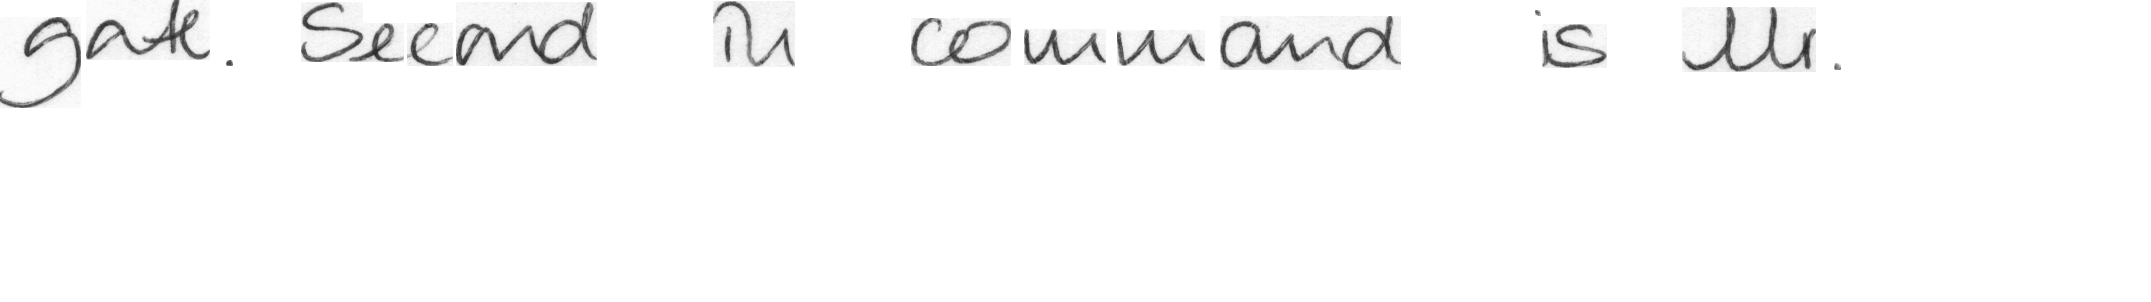 gate. Second in command is Mr.